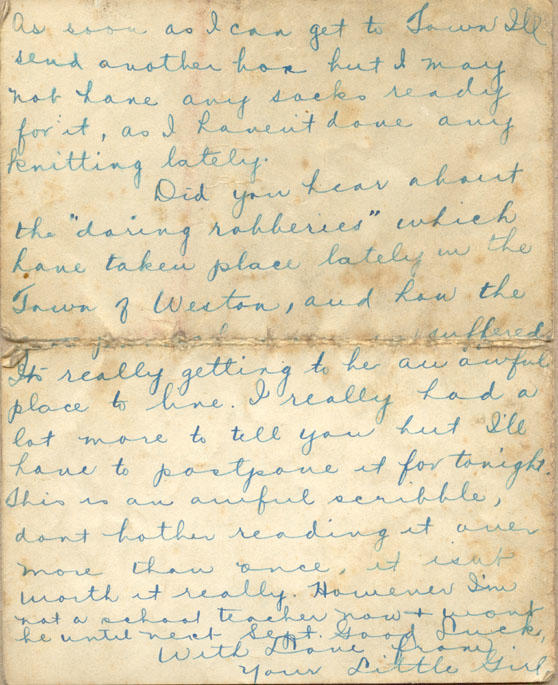 As soon as I can get to Town I'll
send another box but I may
not have any socks ready
for it, as I haven't done any
knitting lately.
Did you hear about
the "daring robberies" which
have taken place lately in the
Town of Weston, and how the
suffered
Its really getting to be an awful
place to live. I really had a
lot more to tell you but I'll
have to postpone it for tonight.
This is an awful scribble,
dont bother reading it over
more than once, it isnt
worth it really. However I'm
not a school teacher now + wont
be until next Sept. Good Luck,
With Love from
Your Little Girl